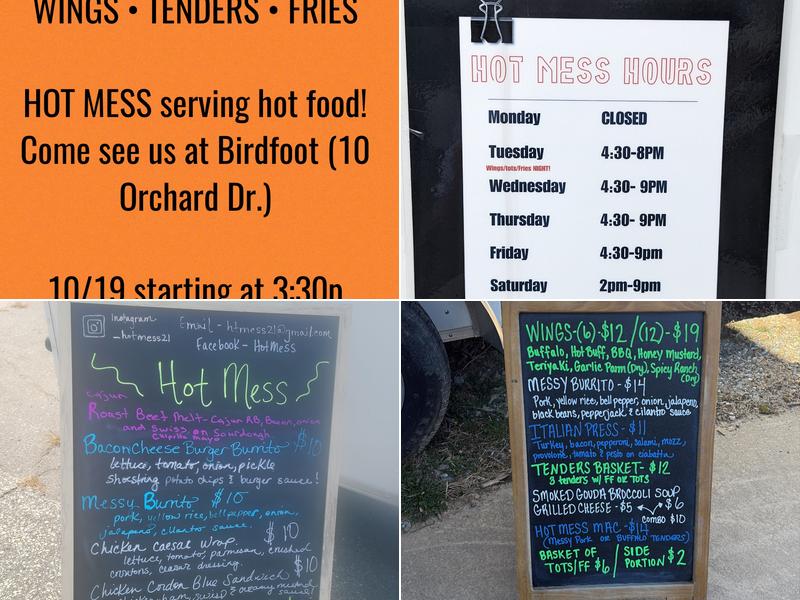 WINGS • TENDERS • FRIES
HOT MESS serving hot food!
Come see us at Birdfoot (10
Orchard Dr.)
10/19 starting at 3:30p
HOT MESS HOURS
Monday CLOSED
Tuesday 4:30-8PM
Wings/tots/Fries NIGHT!
Wednesday 4:30- 9PM
Thursday 4:30- 9PM
Friday 4:30-9pm
Saturday 2pm-9pm
Instagram
_hotmess21
Email - htmess21@gmail.com
Facebook - HotMess
Hot Mess
Cajun
Roast Beef Melt - Cajun RB, Bacon, onion
and Swiss on Sourdough
Chipotle mayo
$10
BaconCheese Burger Burrito
lettuce, tomato, onion, pickle
shoestring potato chips & burger sauce!
Messy Burrito $10
pork, yellow rice, bell pepper, onion,
jalapeño, cilantro sauce.
Chicken Caesar Wrap. $10
lettuce, tomato, parmesan, crushed
croutons, ceasar dressing.
Chicken Cordon Blue Sandwich $10
ham, swiss & creamy mustard
sauce!
WINGS-(6)-$12 / (12)-$19
Buffalo, Hot Buff, BBQ, Honey Mustard,
Teriyaki, Garlic Parm (Dry), Spicy Ranch
(Dry)
MESSY BURRITO - $14
Pork, yellow rice, bell pepper, onion, jalapeno,
black beans, pepperjack & cilantro sauce
ITALIAN PRESS - $11
Turkey, bacon, pepperoni, salami, mozz,
provolone, tomato & pesto on ciabatta
TENDERS BASKET- $12
3 tenders w/ FF or TOTS
SMOKED GOUDA BROCCOLI SOUP
$6
GRILLED CHEESE - $5
combo $10
HOT MESS MAC - $14
(Messy Pork or BUFFALO TENDERS)
BASKET OF
TOTS/FF $6 / SIDE
PORTION $2